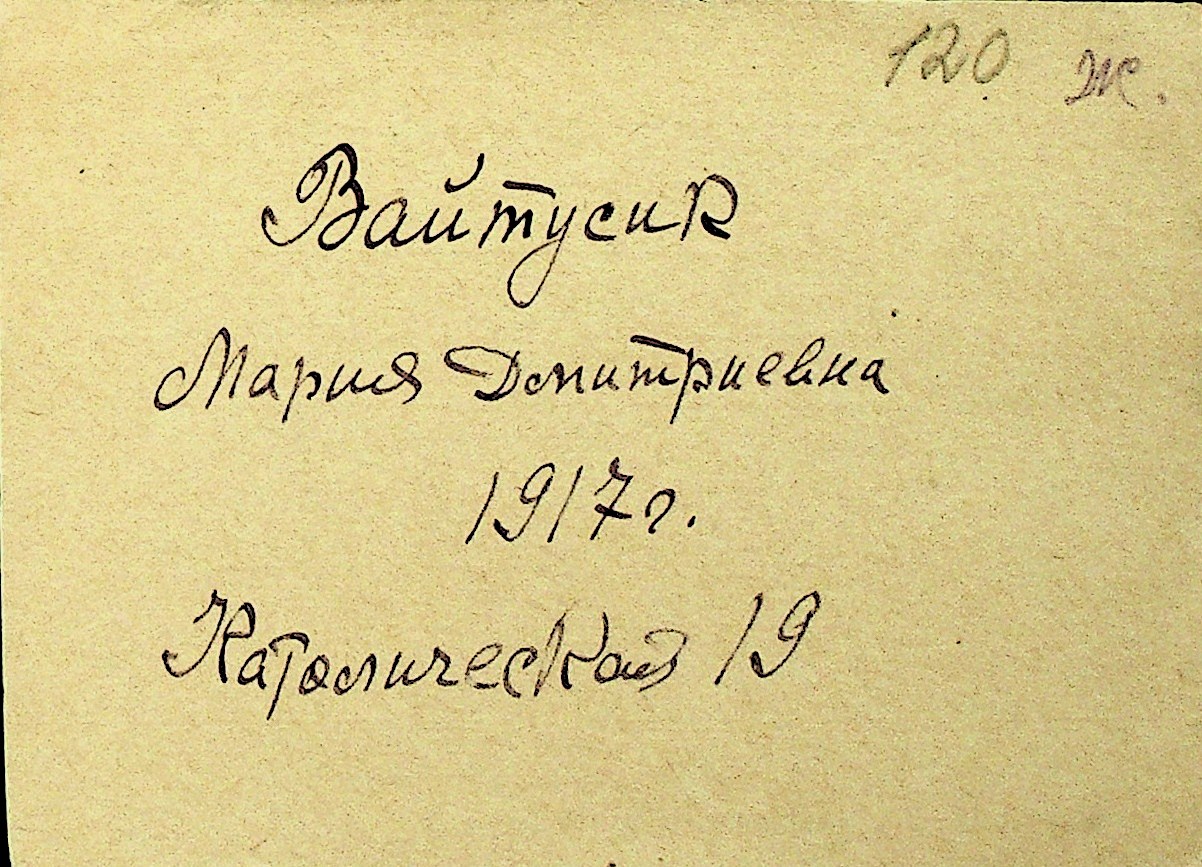 120 ж.
Вайтусик
Мария Дмитриевна
1917 г.
Католическая 19